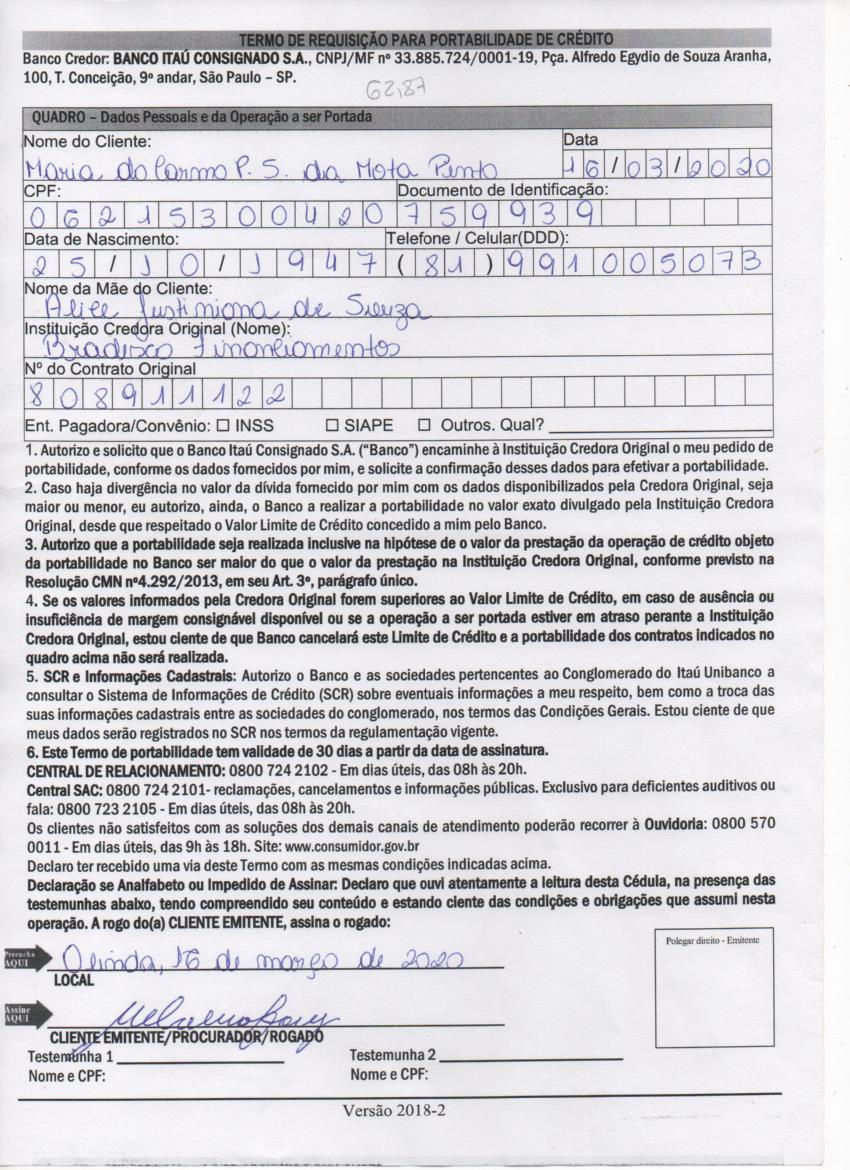 TERMO DE REQUISIÇÃO PARA PORTABILIDADE DE CRÉDITO
Banco Credor: BANCO ITAÚ CONSIGNADO S.A., CNPJ/MF nº 33.885.724/0001-19, Pça. Alfredo Egydio de Souza Aranha,
100, T. Conceição, 9º andar, São Paulo – SP.
62,87
QUADRO – Dados Pessoais e da Operação a ser Portada
Nome do Cliente: Data
Maria do Carmo P. S. da Mota Pinto 16/03/2020
CPF: Documento de Identificação:
06215300420 759939
Data de Nascimento: Telefone / Celular(DDD):
25/10/1947 (81)991005073
Nome da Mãe do Cliente:
Alice Justiniana de Souza
Instituição Credora Original (Nome):
Bradisco Financiamentos
Nº do Contrato Original
808911122
Ent. Pagadora/Convênio: ☐ INSS ☐ SIAPE ☐ Outros. Qual?
1. Autorizo e solicito que o Banco Itaú Consignado S.A. (“Banco”) encaminhe à Instituição Credora Original o meu pedido de
portabilidade, conforme os dados fornecidos por mim, e solicite a confirmação desses dados para efetivar a portabilidade.
2. Caso haja divergência no valor da dívida fornecido por mim com os dados disponibilizados pela Credora Original, seja
maior ou menor, eu autorizo, ainda, o Banco a realizar a portabilidade no valor exato divulgado pela Instituição Credora
Original, desde que respeitado o Valor Limite de Crédito concedido a mim pelo Banco.
3. Autorizo que a portabilidade seja realizada inclusive na hipótese de o valor da prestação da operação de crédito objeto
da portabilidade no Banco ser maior do que o valor da prestação na Instituição Credora Original, conforme previsto na
Resolução CMN nº4.292/2013, em seu Art. 3º, parágrafo único.
4. Se os valores informados pela Credora Original forem superiores ao Valor Limite de Crédito, em caso de ausência ou
insuficiência de margem consignável disponível ou se a operação a ser portada estiver em atraso perante a Instituição
Credora Original, estou ciente de que Banco cancelará este Limite de Crédito e a portabilidade dos contratos indicados no
quadro acima não será realizada.
5. SCR e Informações Cadastrais: Autorizo o Banco e as sociedades pertencentes ao Conglomerado do Itaú Unibanco a
consultar o Sistema de Informações de Crédito (SCR) sobre eventuais informações a meu respeito, bem como a troca das
suas informações cadastrais entre as sociedades do conglomerado, nos termos das Condições Gerais. Estou ciente de que
meus dados serão registrados no SCR nos termos da regulamentação vigente.
6. Este Termo de portabilidade tem validade de 30 dias a partir da data de assinatura.
CENTRAL DE RELACIONAMENTO: 0800 724 2102 - Em dias úteis, das 08h às 20h.
Central SAC: 0800 724 2101- reclamações, cancelamentos e informações públicas. Exclusivo para deficientes auditivos ou
fala: 0800 723 2105 - Em dias úteis, das 08h às 20h.
Os clientes não satisfeitos com as soluções dos demais canais de atendimento poderão recorrer à Ouvidoria: 0800 570
0011 - Em dias úteis, das 9h às 18h. Site: www.consumidor.gov.br
Declaro ter recebido uma via deste Termo com as mesmas condições indicadas acima.
Declaração se Analfabeto ou Impedido de Assinar: Declaro que ouvi atentamente a leitura desta Cédula, na presença das
testemunhas abaixo, tendo compreendido seu conteúdo e estando ciente das condições e obrigações que assumi nesta
operação. A rogo do(a) CLIENTE EMITENTE, assina o rogado:
Polegar direito - Emitente
Preencha
AQUI
Olinda, 16 de março de 2020
LOCAL
Assine
AQUI
CLIENTE EMITENTE/PROCURADOR/ROGADO
Testemunha 1 Testemunha 2
Nome e CPF: Nome e CPF:
Versão 2018-2